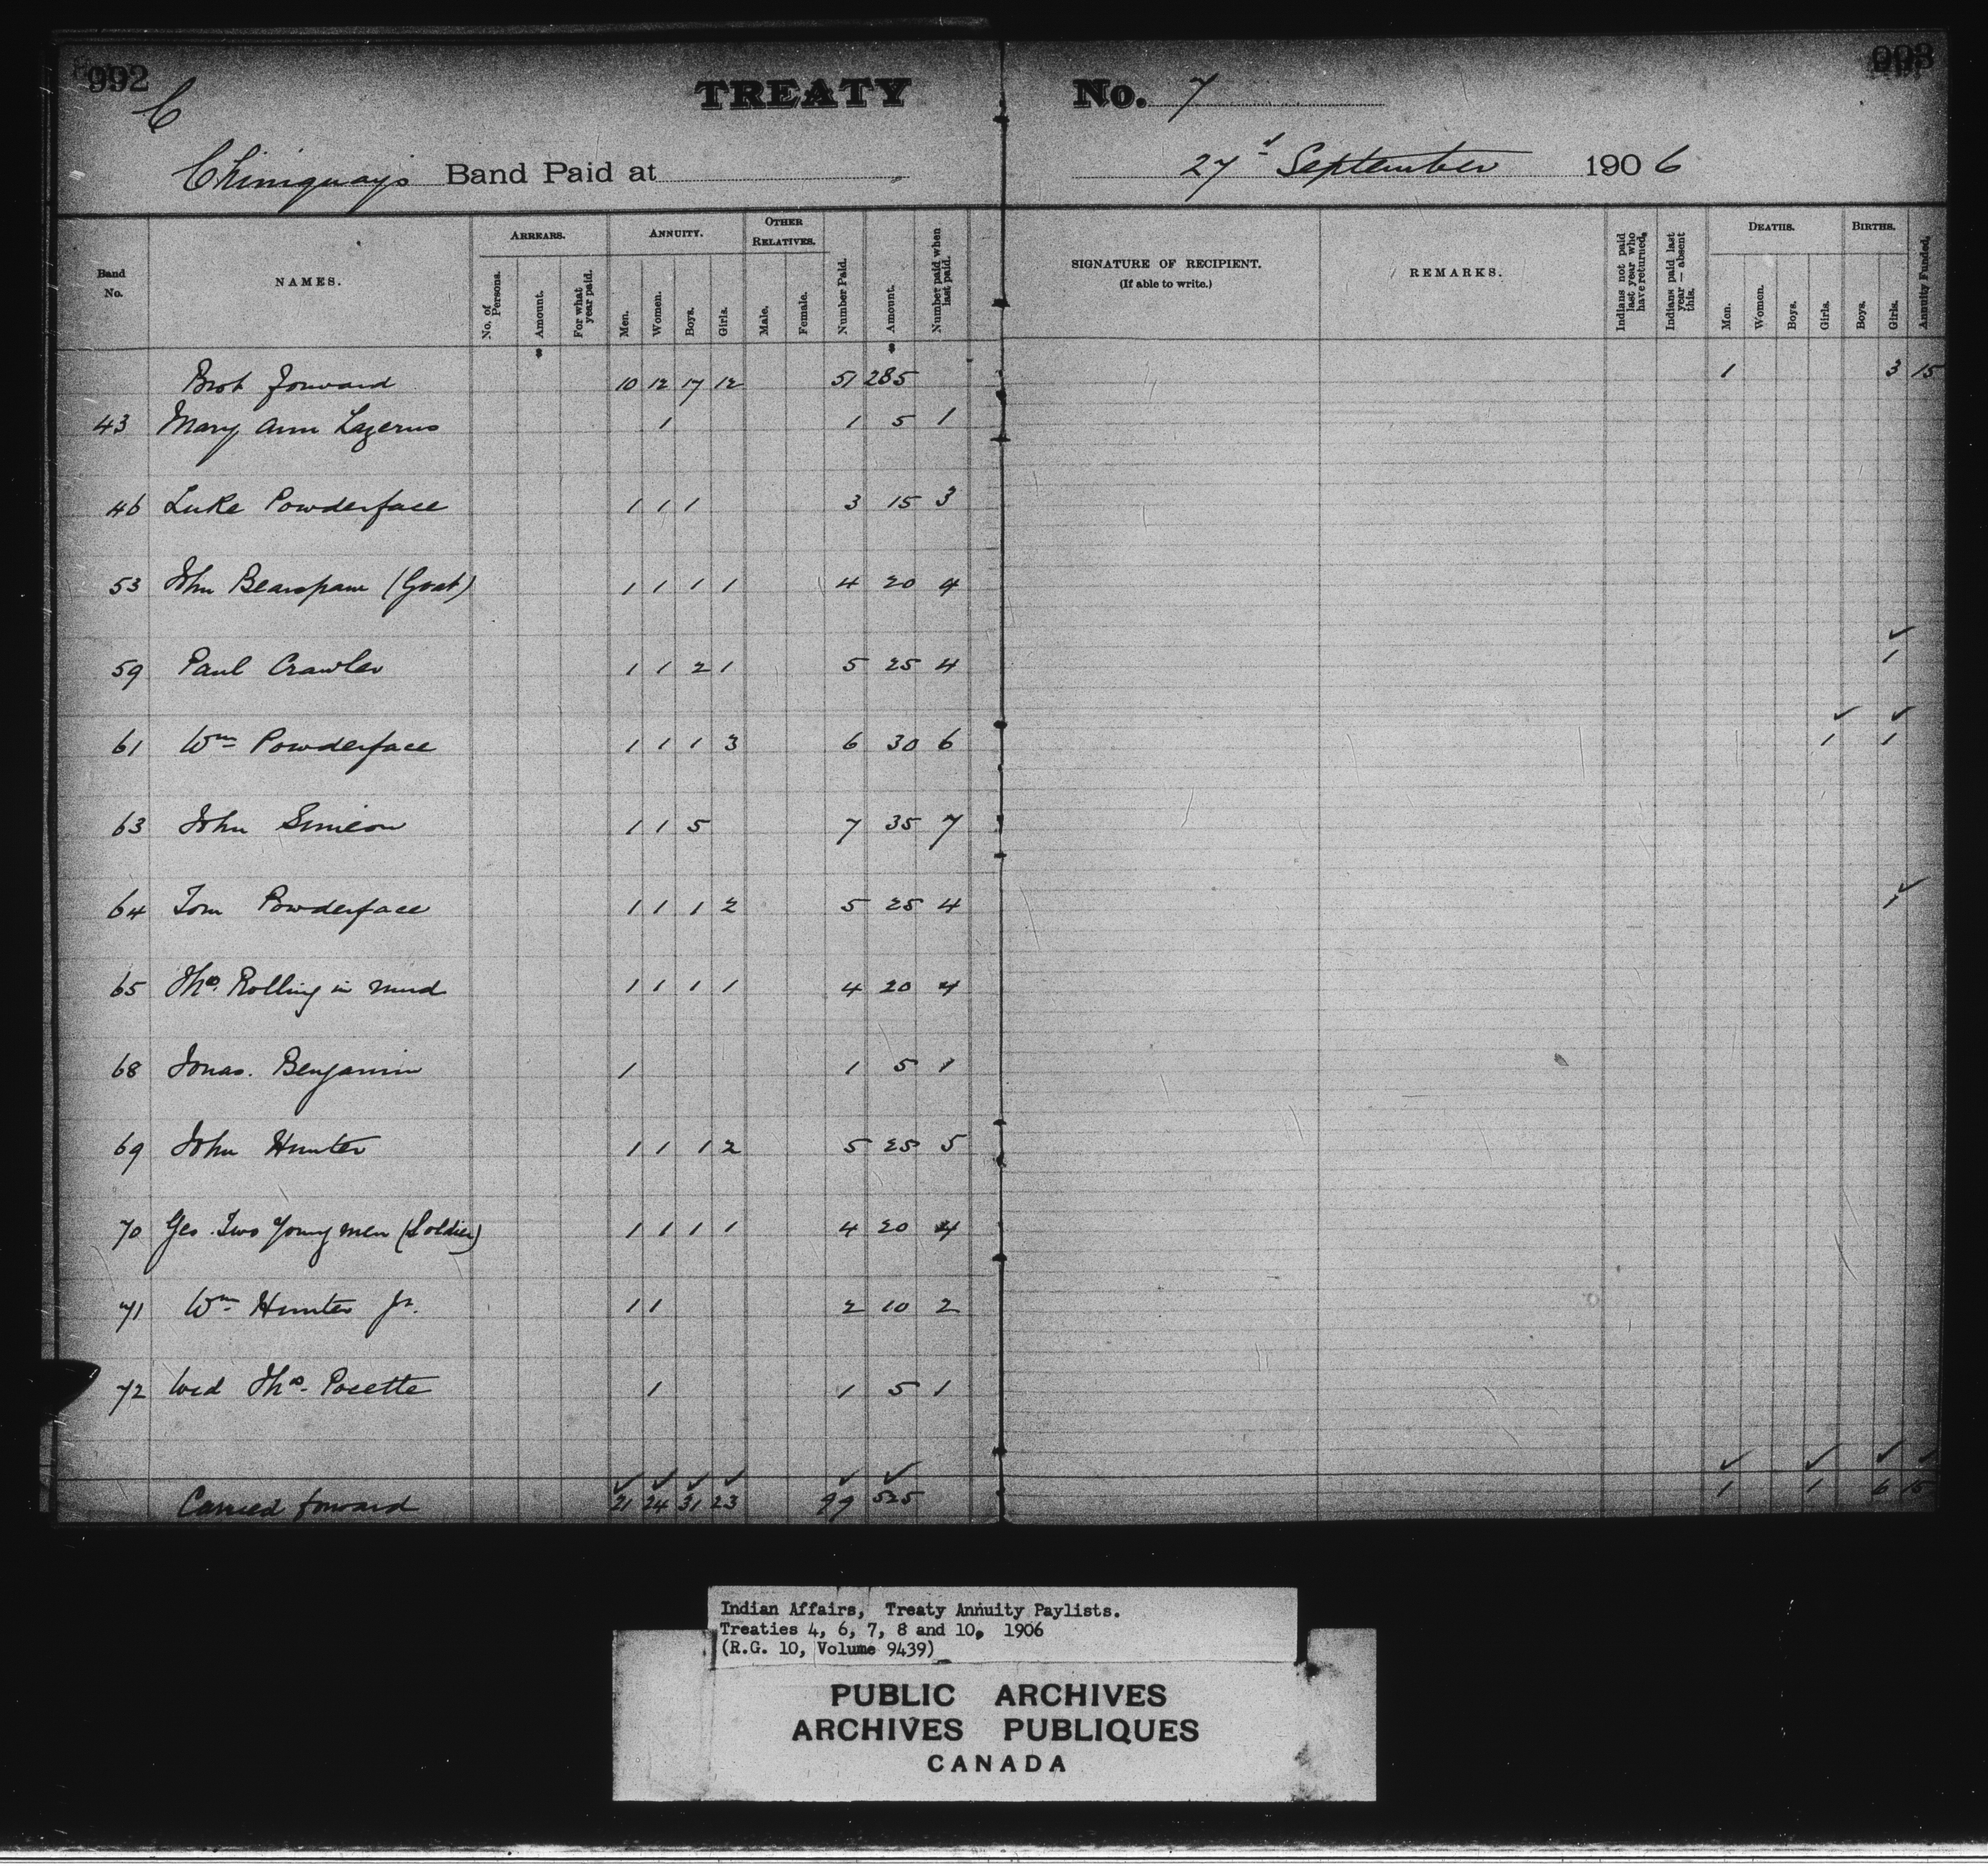 992
TREATY No. 7
993
C
Chiniquay's Band Paid at
27th September 1906
Band No.
NAMES.
ARREARS.
No. of Persons.
Amount.
For what year paid.
ANNUITY.
Men.
Women.
Boys.
Girls.
OTHER RELATIVES.
Male.
Female.
Number Paid.
Amount.
Number paid when last paid.
SIGNATURE OF RECIPIENT.
(If able to write.)
REMARKS.
Indians not paid last year who have returned.
Indians paid last year — absent this.
DEATHS.
Men.
Women.
Boys.
Girls.
BIRTHS.
Boys.
Girls.
Annuity Funded.
Brot forward 10 12 17 12 51 285 1 3 15
43 Mary Ann Lazerus 1 1 5 1
46 Luke Powderface 1 1 1 3 15 3
53 John Bearspaw (Goat) 1 1 1 1 4 20 4
59 Paul Crawler 1 1 2 1 5 25 4 ✓ 1
61 Wm Powderface 1 1 1 3 6 30 6 ✓ 1 ✓ 1
63 John Simeon 1 1 5 7 35 7
64 Tom Powderface 1 1 1 2 5 25 4 ✓ 1
65 Thos. Rolling in mud 1 1 1 1 4 20 4
68 Jonas. Benjamin 1 1 5 1
69 John Hunter 1 1 1 2 5 25 5
70 Geo. Two Young men (Soldier) 1 1 1 1 4 20 4
71 Wm Hunter Jr. 1 1 2 10 2
72 Wid Thos. Pocette 1 1 5 1
✓ ✓ ✓ ✓ ✓ ✓ ✓ ✓ ✓ ✓
Carried forward 21 24 31 23 99 525 1 1 6 15
Indian Affairs, Treaty Annuity Paylists.
Treaties 4, 6, 7, 8 and 10, 1906
(R.G. 10, Volume 9439)
PUBLIC ARCHIVES
ARCHIVES PUBLIQUES
CANADA